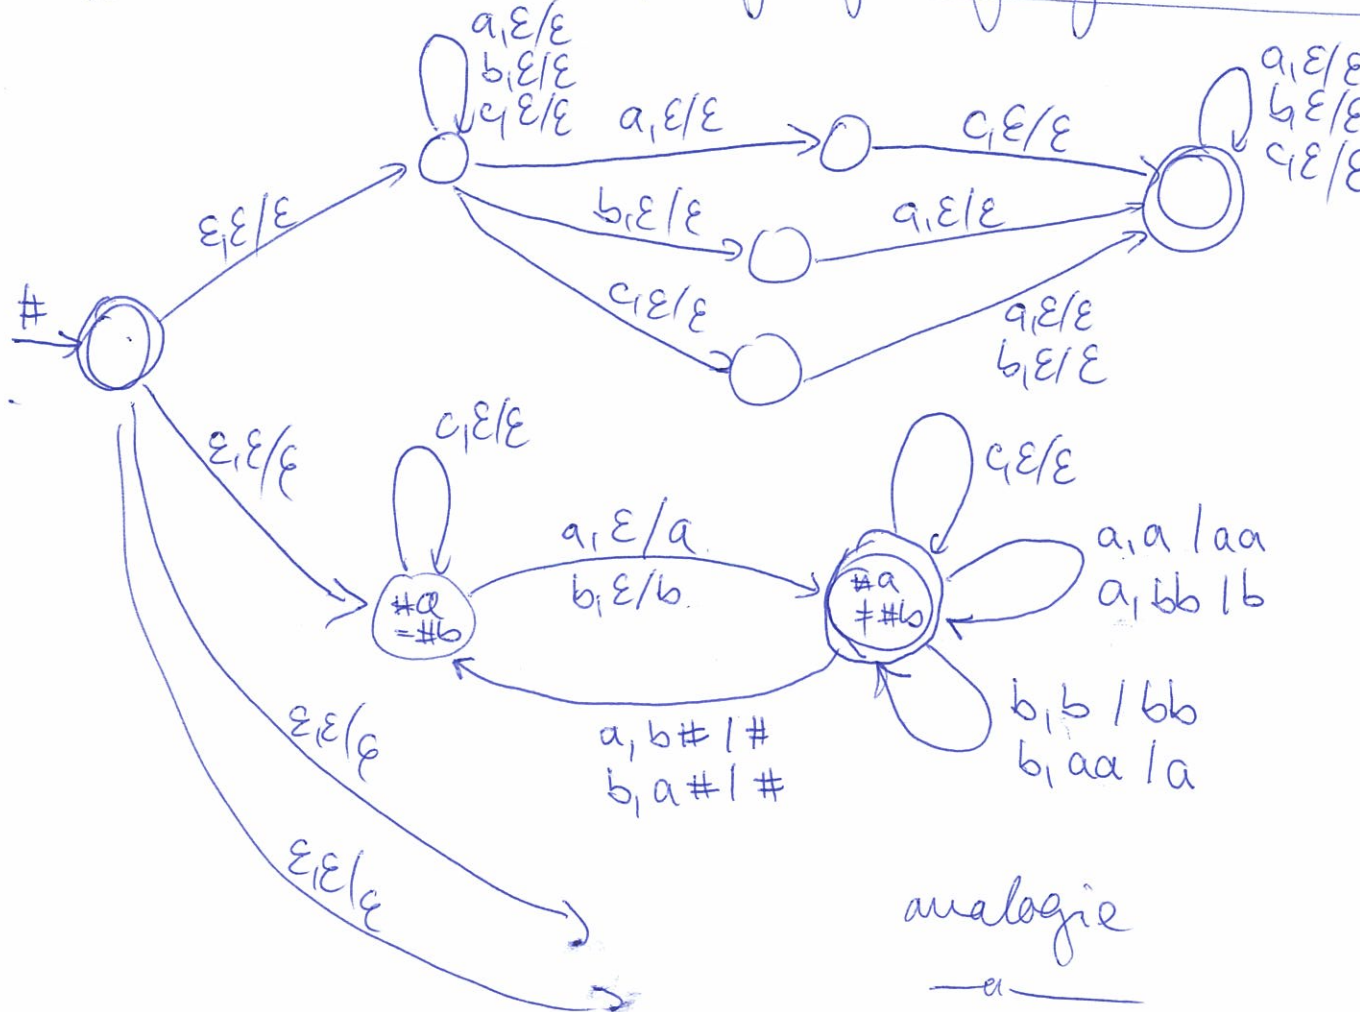 a,ε/ε
b,ε/ε
c,ε/ε
a,ε/ε
c,ε/ε
a,ε/ε
b,ε/ε
c,ε/ε
ε,ε/ε
b,ε/ε
a,ε/ε
#
c,ε/ε
a,ε/ε
b,ε/ε
ε,ε/ε
c,ε/ε
c,ε/ε
a,ε/a
b,ε/b
#a
=#b
#a
≠#b
a,a/aa
a,bb/b
a,b#/#
b,a#/#
b,b/bb
b,aa/a
ε,ε/ε
ε,ε/ε
analogie